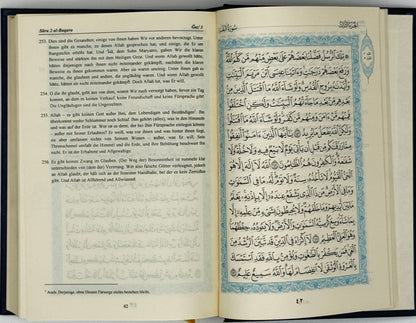 Sûra 2 al-Baqara
Ǧuz' 3
253. Dies sind die Gesandten; einige von ihnen haben Wir vor anderen bevorzugt. Unter
ihnen gibt es manche, zu denen Allah gesprochen hat, und einige, die Er um
Rangstufen erhöht hat. Und ʿĪsā, dem Sohn Maryams, gaben Wir die klaren
Beweise und stärkten ihn mit dem Heiligen Geist. Und wenn Allah gewollt hätte,
hätten diejenigen nach ihnen sich nicht miteinander gekämpft, nachdem die klaren
Beweise zu ihnen gekommen waren. Aber sie waren uneinig: Unter ihnen gab es
manche, die glaubten und andere, die ungläubig waren. Und wenn Allah gewollt
hätte, hätten sie nicht miteinander gekämpft. Doch Allah tut, was Er will.
254. O die ihr glaubt, gebt aus von dem, womit Wir euch versorgt haben, bevor ein Tag
kommt, an dem es keinen Verkauf, keine Freundschaft und keine Fürsprache gibt!
Die Ungläubigen sind die Ungerechten.
255. Allah – es gibt keinen Gott außer Ihm, dem Lebendigen und Beständigen¹. Ihn
überkommt weder Schlummer noch Schlaf. Ihm gehört (alles), was in den Himmeln
und was auf der Erde ist. Wer ist es denn, der bei Ihm Fürsprache einlegen könnte
– außer mit Seiner Erlaubnis? Er weiß, was vor ihnen und was hinter ihnen liegt,
sie aber umfassen nichts von Seinem Wissen – außer, was Er will. Sein
Thronschemel umfaßt die Himmel und die Erde, und ihre Behütung beschwert Ihn
nicht. Er ist der Erhabene und Allgewaltige.
256. Es gibt keinen Zwang im Glauben. (Der Weg der) Besonnenheit ist nunmehr klar
unterschieden von (dem der) Verirrung. Wer also falsche Götter verleugnet, jedoch
an Allah glaubt, der hält sich an der festesten Handhabe, bei der es kein Zerreißen
gibt. Und Allah ist Allhörend und Allwissend.
¹ Auch: Derjenige, ohne Dessen Fürsorge nichts bestehen bleibt.
42
الجزء الثالث
سورة البقرة
تِلْكَ ٱلرُّسُلُ فَضَّلْنَا بَعْضَهُمْ عَلَىٰ بَعْضٍ مِّنْهُم مَّن كَلَّمَ ٱللَّهُ
وَرَفَعَ بَعْضَهُمْ دَرَجَٰتٍ وَءَاتَيْنَا عِيسَى ٱبْنَ مَرْيَمَ ٱلْبَيِّنَٰتِ
وَأَيَّدْنَٰهُ بِرُوحِ ٱلْقُدُسِ وَلَوْ شَآءَ ٱللَّهُ مَا ٱقْتَتَلَ ٱلَّذِينَ مِنۢ بَعْدِهِم
مِّنۢ بَعْدِ مَا جَآءَتْهُمُ ٱلْبَيِّنَٰتُ وَلَٰكِنِ ٱخْتَلَفُوا۟ فَمِنْهُم
مَّنْ ءَامَنَ وَمِنْهُم مَّن كَفَرَ وَلَوْ شَآءَ ٱللَّهُ مَا ٱقْتَتَلُوا۟ وَلَٰكِنَّ ٱللَّهَ
يَفْعَلُ مَا يُرِيدُ ۝ يَٰٓأَيُّهَا ٱلَّذِينَ ءَامَنُوٓا۟ أَنفِقُوا۟ مِمَّا رَزَقْنَٰكُم مِّن
قَبْلِ أَن يَأْتِىَ يَوْمٌ لَّا بَيْعٌ فِيهِ وَلَا خُلَّةٌ وَلَا شَفَٰعَةٌ وَٱلْكَٰفِرُونَ
هُمُ ٱلظَّٰلِمُونَ ۝ ٱللَّهُ لَآ إِلَٰهَ إِلَّا هُوَ ٱلْحَىُّ ٱلْقَيُّومُ لَا تَأْخُذُهُۥ
سِنَةٌ وَلَا نَوْمٌ لَّهُۥ مَا فِى ٱلسَّمَٰوَٰتِ وَمَا فِى ٱلْأَرْضِ مَن ذَا ٱلَّذِى يَشْفَعُ
عِندَهُۥٓ إِلَّا بِإِذْنِهِۦ يَعْلَمُ مَا بَيْنَ أَيْدِيهِمْ وَمَا خَلْفَهُمْ وَلَا يُحِيطُونَ
بِشَىْءٍ مِّنْ عِلْمِهِۦٓ إِلَّا بِمَا شَآءَ وَسِعَ كُرْسِيُّهُ ٱلسَّمَٰوَٰتِ
وَٱلْأَرْضَ وَلَا يَـُٔودُهُۥ حِفْظُهُمَا وَهُوَ ٱلْعَلِىُّ ٱلْعَظِيمُ ۝
لَآ إِكْرَاهَ فِى ٱلدِّينِ قَد تَّبَيَّنَ ٱلرُّشْدُ مِنَ ٱلْغَىِّ فَمَن
يَكْفُرْ بِٱلطَّٰغُوتِ وَيُؤْمِنۢ بِٱللَّهِ فَقَدِ ٱسْتَمْسَكَ
بِٱلْعُرْوَةِ ٱلْوُثْقَىٰ لَا ٱنفِصَامَ لَهَا وَٱللَّهُ سَمِيعٌ عَلِيمٌ ۝
٤٢